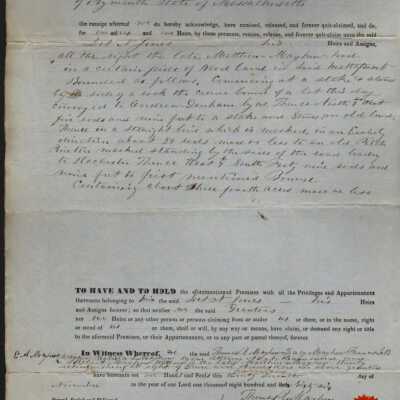 of Plymouth State of Massachusetts
the receipt whereof we do hereby acknowledge, have remised, released, and forever quit-claimed, and do,
for ourselves and our Heirs, by these presents, remise, release, and forever quit-claim unto the said
Joel A Jones his Heirs and Assigns,
all the right the late Matthew Mayhew had
in a certain piece of Wood Land in said Mattapoisett
Bounded as follows. Commencing at a stake & stones
by the side of a rock the corner bound of a lot this day
conveyed to Andrew Denham by us Thence North West
five rods and nine feet to a stake and stones an old bound
Thence in a straight line which is marked in an Easterly
direction about 20 rods more or less to an old Pitch
Pine tree marked standing by the side of the road leading
to Rochester Thence South Forty nine rods and
nine feet to first mentioned Bound
Containing about three fourth acres more or less
TO HAVE AND TO HOLD the aforementioned Premises with all the Privileges and Appurtenances
thereunto belonging to him the said Joel A Jones his Heirs
and Assigns forever; so that neither we the said Grantors
nor our Heirs or any other person or persons claiming from or under us or them, or in the name, right
or stead of us or them, shall or will, by any way or means, have, claim, or demand any right or title
to the aforesaid Premises, or their Appurtenances, or to any part or parcel thereof forever.
In Witness Whereof, we the said Thomas Mayhew
hereunto set our Hand and Seal this day of
in the year of our Lord one thousand eight hundred and sixty six
Thomas Mayhew